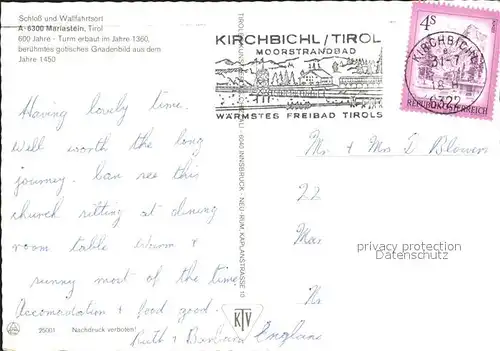 Schloß und Wallfahrtsort
A-6300 Mariastein, Tirol
600 Jahre - Turm erbaut im Jahre 1360,
berühmtes gotisches Gnadenbild aus dem
Jahre 1450
Having lovely time.
Well worth the long
journey. Can see this
church sitting at dining
room table. Warm &
sunny most of the time
Accomodation & food good.
Ruth & Barbara
25001 Nachdruck verboten!
6040 INNSBRUCK - NEU-RUM, KAPLANSTRASSE 10
KTV
KIRCHBICHL/TIROL
MOORSTRANDBAD
WÄRMSTES FREIBAD TIROLS
4S
REPUBLIK ÖSTERREICH
KIRCHBICHL
31.-7.
18
6322
Mr & Mrs D Blowers
22
England
privacy protection
Datenschutz